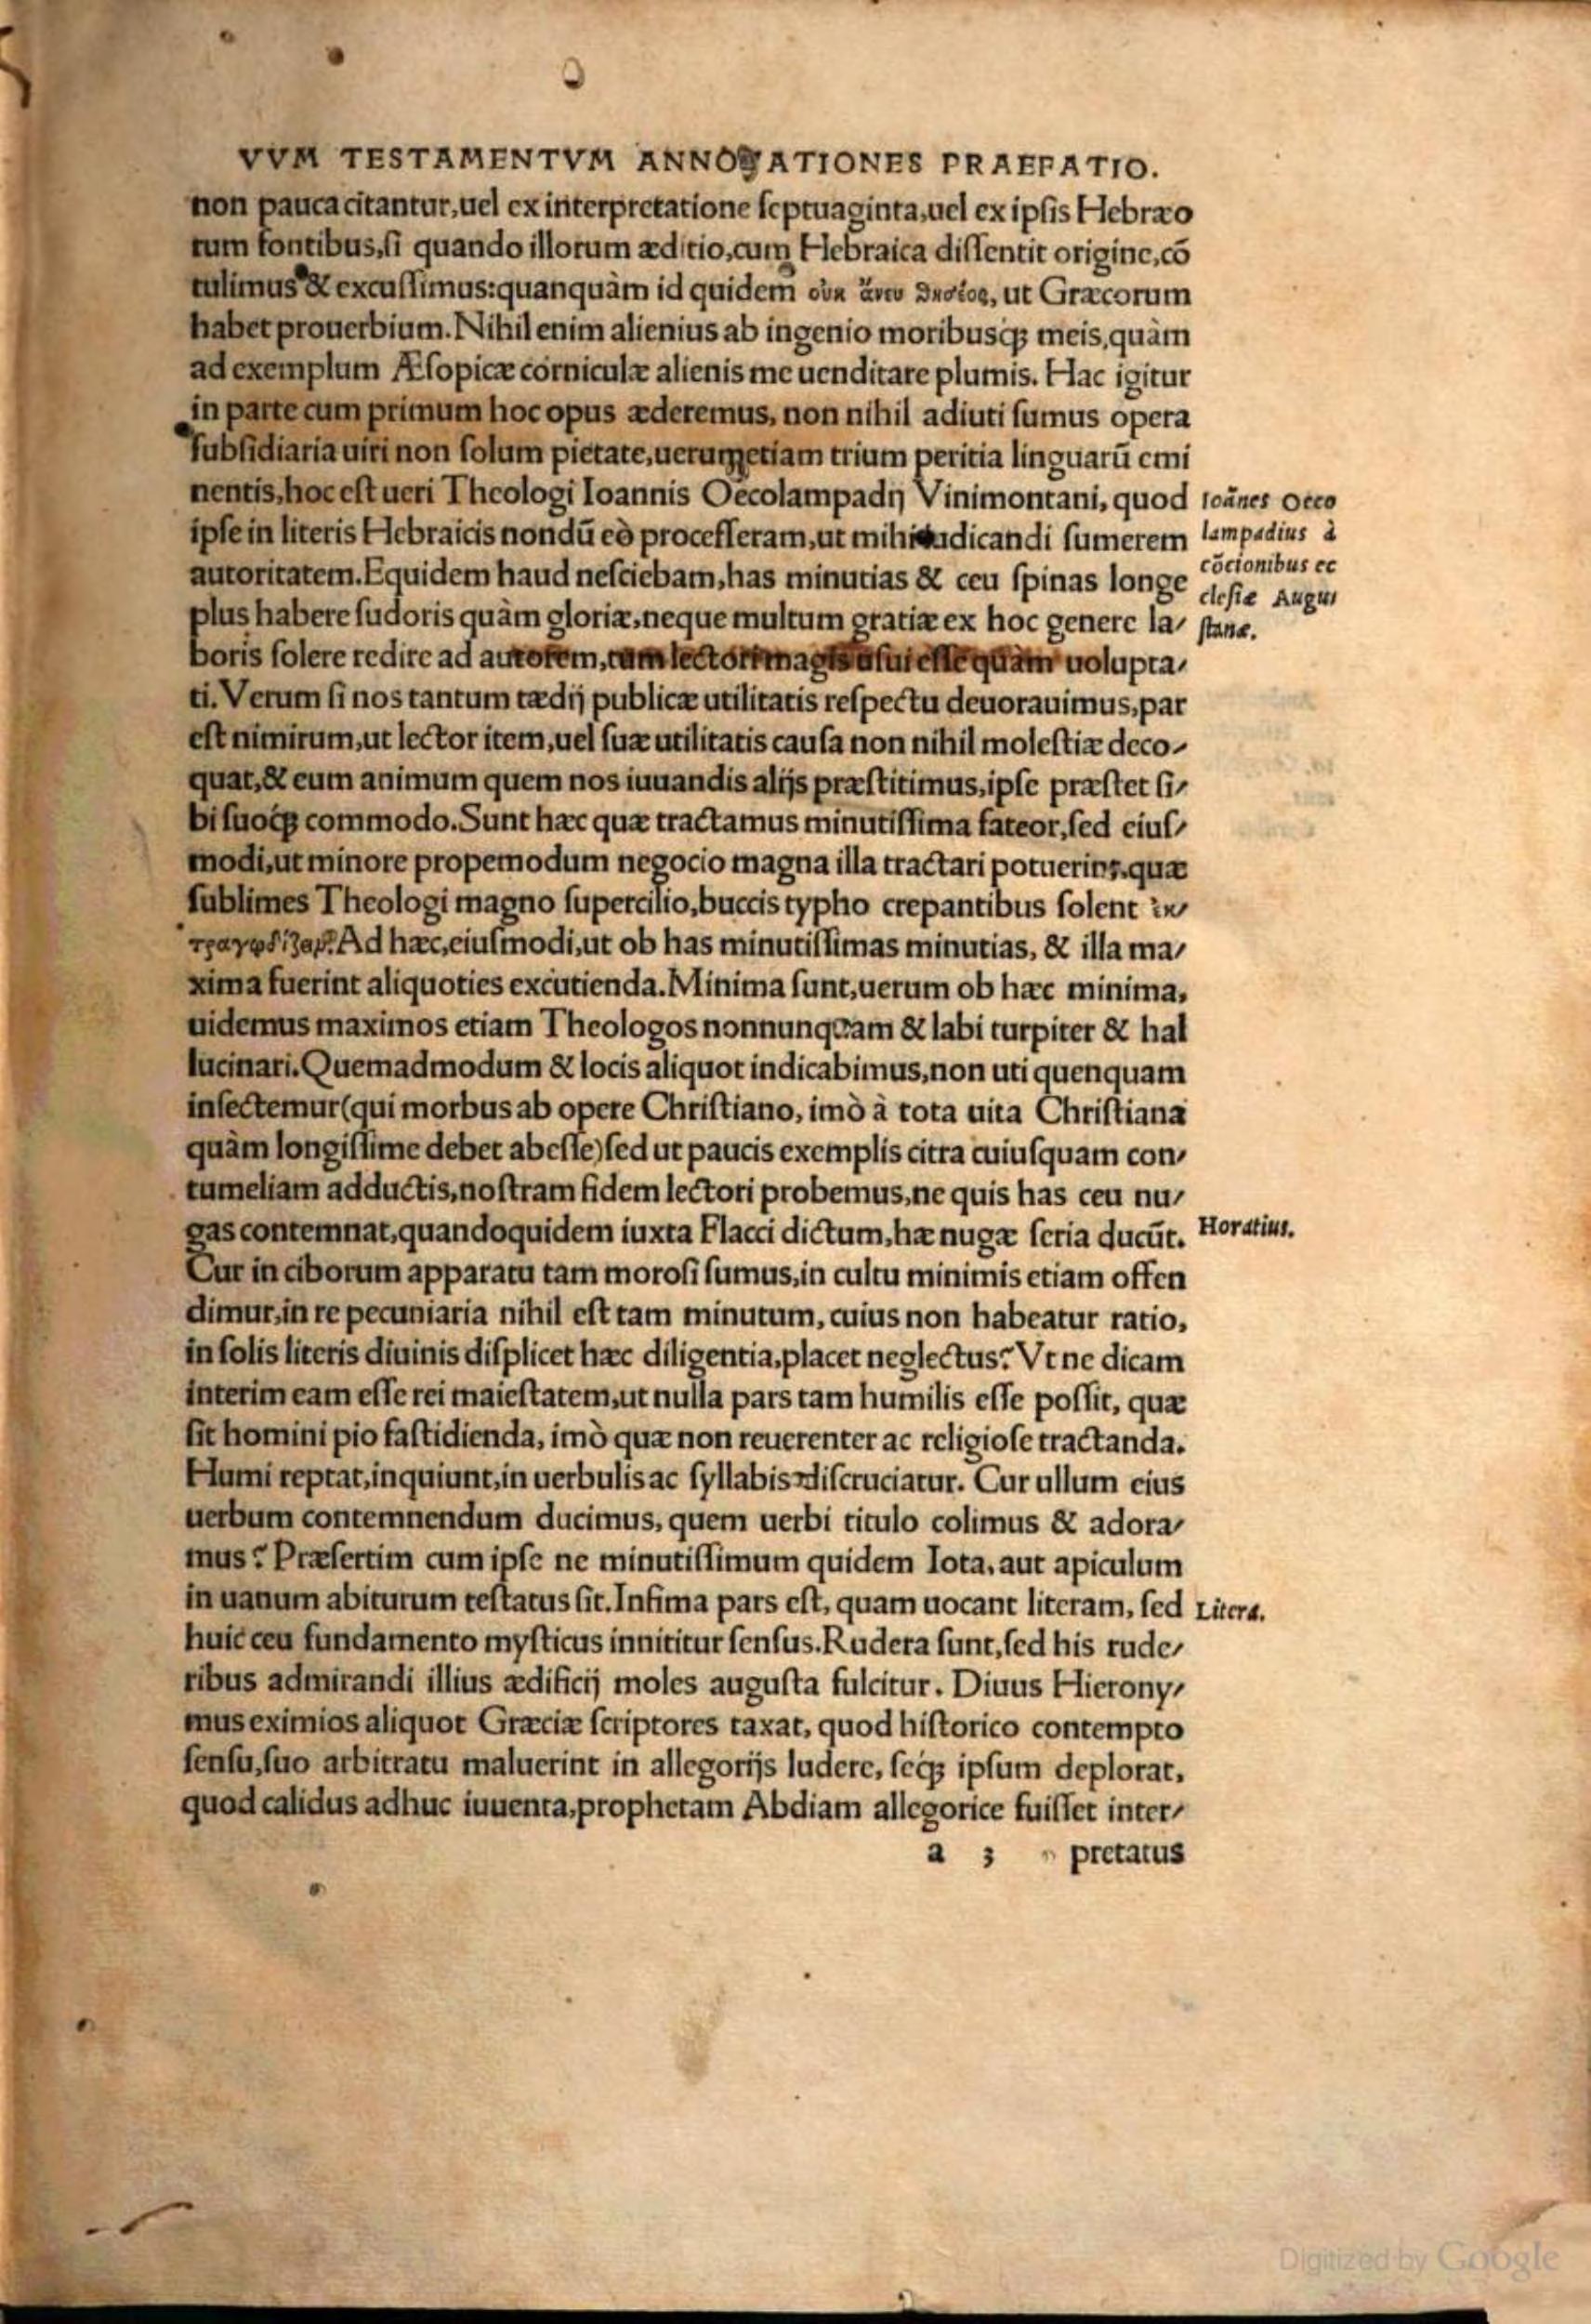 VVM TESTAMENTVM ANNOTATIONES PRAEFATIO.
non pauca citantur, uel ex interpretatione ſeptuaginta, uel ex ipſis Hebræo
rum fontibus, ſi quando illorum æditio, cum Hebraica diſſentit origine, cō
tulimus & excuſſimus: quanquàm id quidem οὐκ ἄνευ θησέως, ut Græcorum
habet prouerbium. Nihil enim alienius ab ingenio moribusq; meis, quàm
ad exemplum Æſopicæ corniculæ alienis me uenditare plumis. Hac igitur
in parte cum primum hoc opus æderemus, non nihil adiuti ſumus opera
ſubſidiaria uiri non ſolum pietate, uerumetiam trium peritia linguarū emi
nentis, hoc eſt ueri Theologi Ioannis Oecolampadij Vinimontani, quod
Ioānes Oeco
ipſe in literis Hebraicis nondū eò proceſſeram, ut mihi iudicandi ſumerem
lampadius à
autoritatem. Equidem haud neſciebam, has minutias & ceu ſpinas longe
cōcionibus ec
cleſiæ Augu
plus habere ſudoris quàm gloriæ, neque multum gratiæ ex hoc genere la/
ſtanæ.
boris ſolere redire ad autorem, tum lectori magis uſui eſſe quàm uolupta/
ti. Verum ſi nos tantum tædij publicæ utilitatis reſpectu deuorauimus, par
eſt nimirum, ut lector item, uel ſuæ utilitatis cauſa non nihil moleſtiæ deco/
quat, & eum animum quem nos iuuandis alijs præſtitimus, ipſe præſtet ſi/
bi ſuoq; commodo. Sunt hæc quæ tractamus minutiſſima fateor, ſed eiuſ/
modi, ut minore propemodum negocio magna illa tractari potuerint, quæ
ſublimes Theologi magno ſupercilio, buccis typho crepantibus ſolent ἐκ/
τραγῳδίζειν. Ad hæc, eiuſmodi, ut ob has minutiſſimas minutias, & illa ma/
xima fuerint aliquoties excutienda. Minima ſunt, uerum ob hæc minima,
uidemus maximos etiam Theologos nonnunquam & labi turpiter & hal
lucinari. Quemadmodum & locis aliquot indicabimus, non uti quenquam
inſectemur (qui morbus ab opere Chriſtiano, imò à tota uita Chriſtiana
quàm longiſſime debet abeſſe) ſed ut paucis exemplis citra cuiuſquam con/
tumeliam adductis, noſtram fidem lectori probemus, ne quis has ceu nu/
gas contemnat, quandoquidem iuxta Flacci dictum, hæ nugæ ſeria ducūt.
Horatius.
Cur in ciborum apparatu tam moroſi ſumus, in cultu minimis etiam offen
dimur, in re pecuniaria nihil eſt tam minutum, cuius non habeatur ratio,
in ſolis literis diuinis diſplicet hæc diligentia, placet neglectus? Vt ne dicam
interim eam eſſe rei maieſtatem, ut nulla pars tam humilis eſſe poſſit, quæ
ſit homini pio faſtidienda, imò quæ non reuerenter ac religioſe tractanda.
Humi reptat, inquiunt, in uerbulis ac ſyllabis diſcruciatur. Cur ullum eius
uerbum contemnendum ducimus, quem uerbi titulo colimus & adora/
mus? Præſertim cum ipſe ne minutiſſimum quidem Iota, aut apiculum
in uanum abiturum teſtatus ſit. Infima pars eſt, quam uocant literam, ſed
Litera.
huic ceu fundamento myſticus innititur ſenſus. Rudera ſunt, ſed his rude/
ribus admirandi illius ædificij moles auguſta fulcitur. Diuus Hierony/
mus eximios aliquot Græciæ ſcriptores taxat, quod hiſtorico contempto
ſenſu, ſuo arbitratu maluerint in allegorijs ludere, ſeq; ipſum deplorat,
quod calidus adhuc iuuenta, prophetam Abdiam allegorice fuiſſet inter/
a 3 pretatus
Digitized by Google